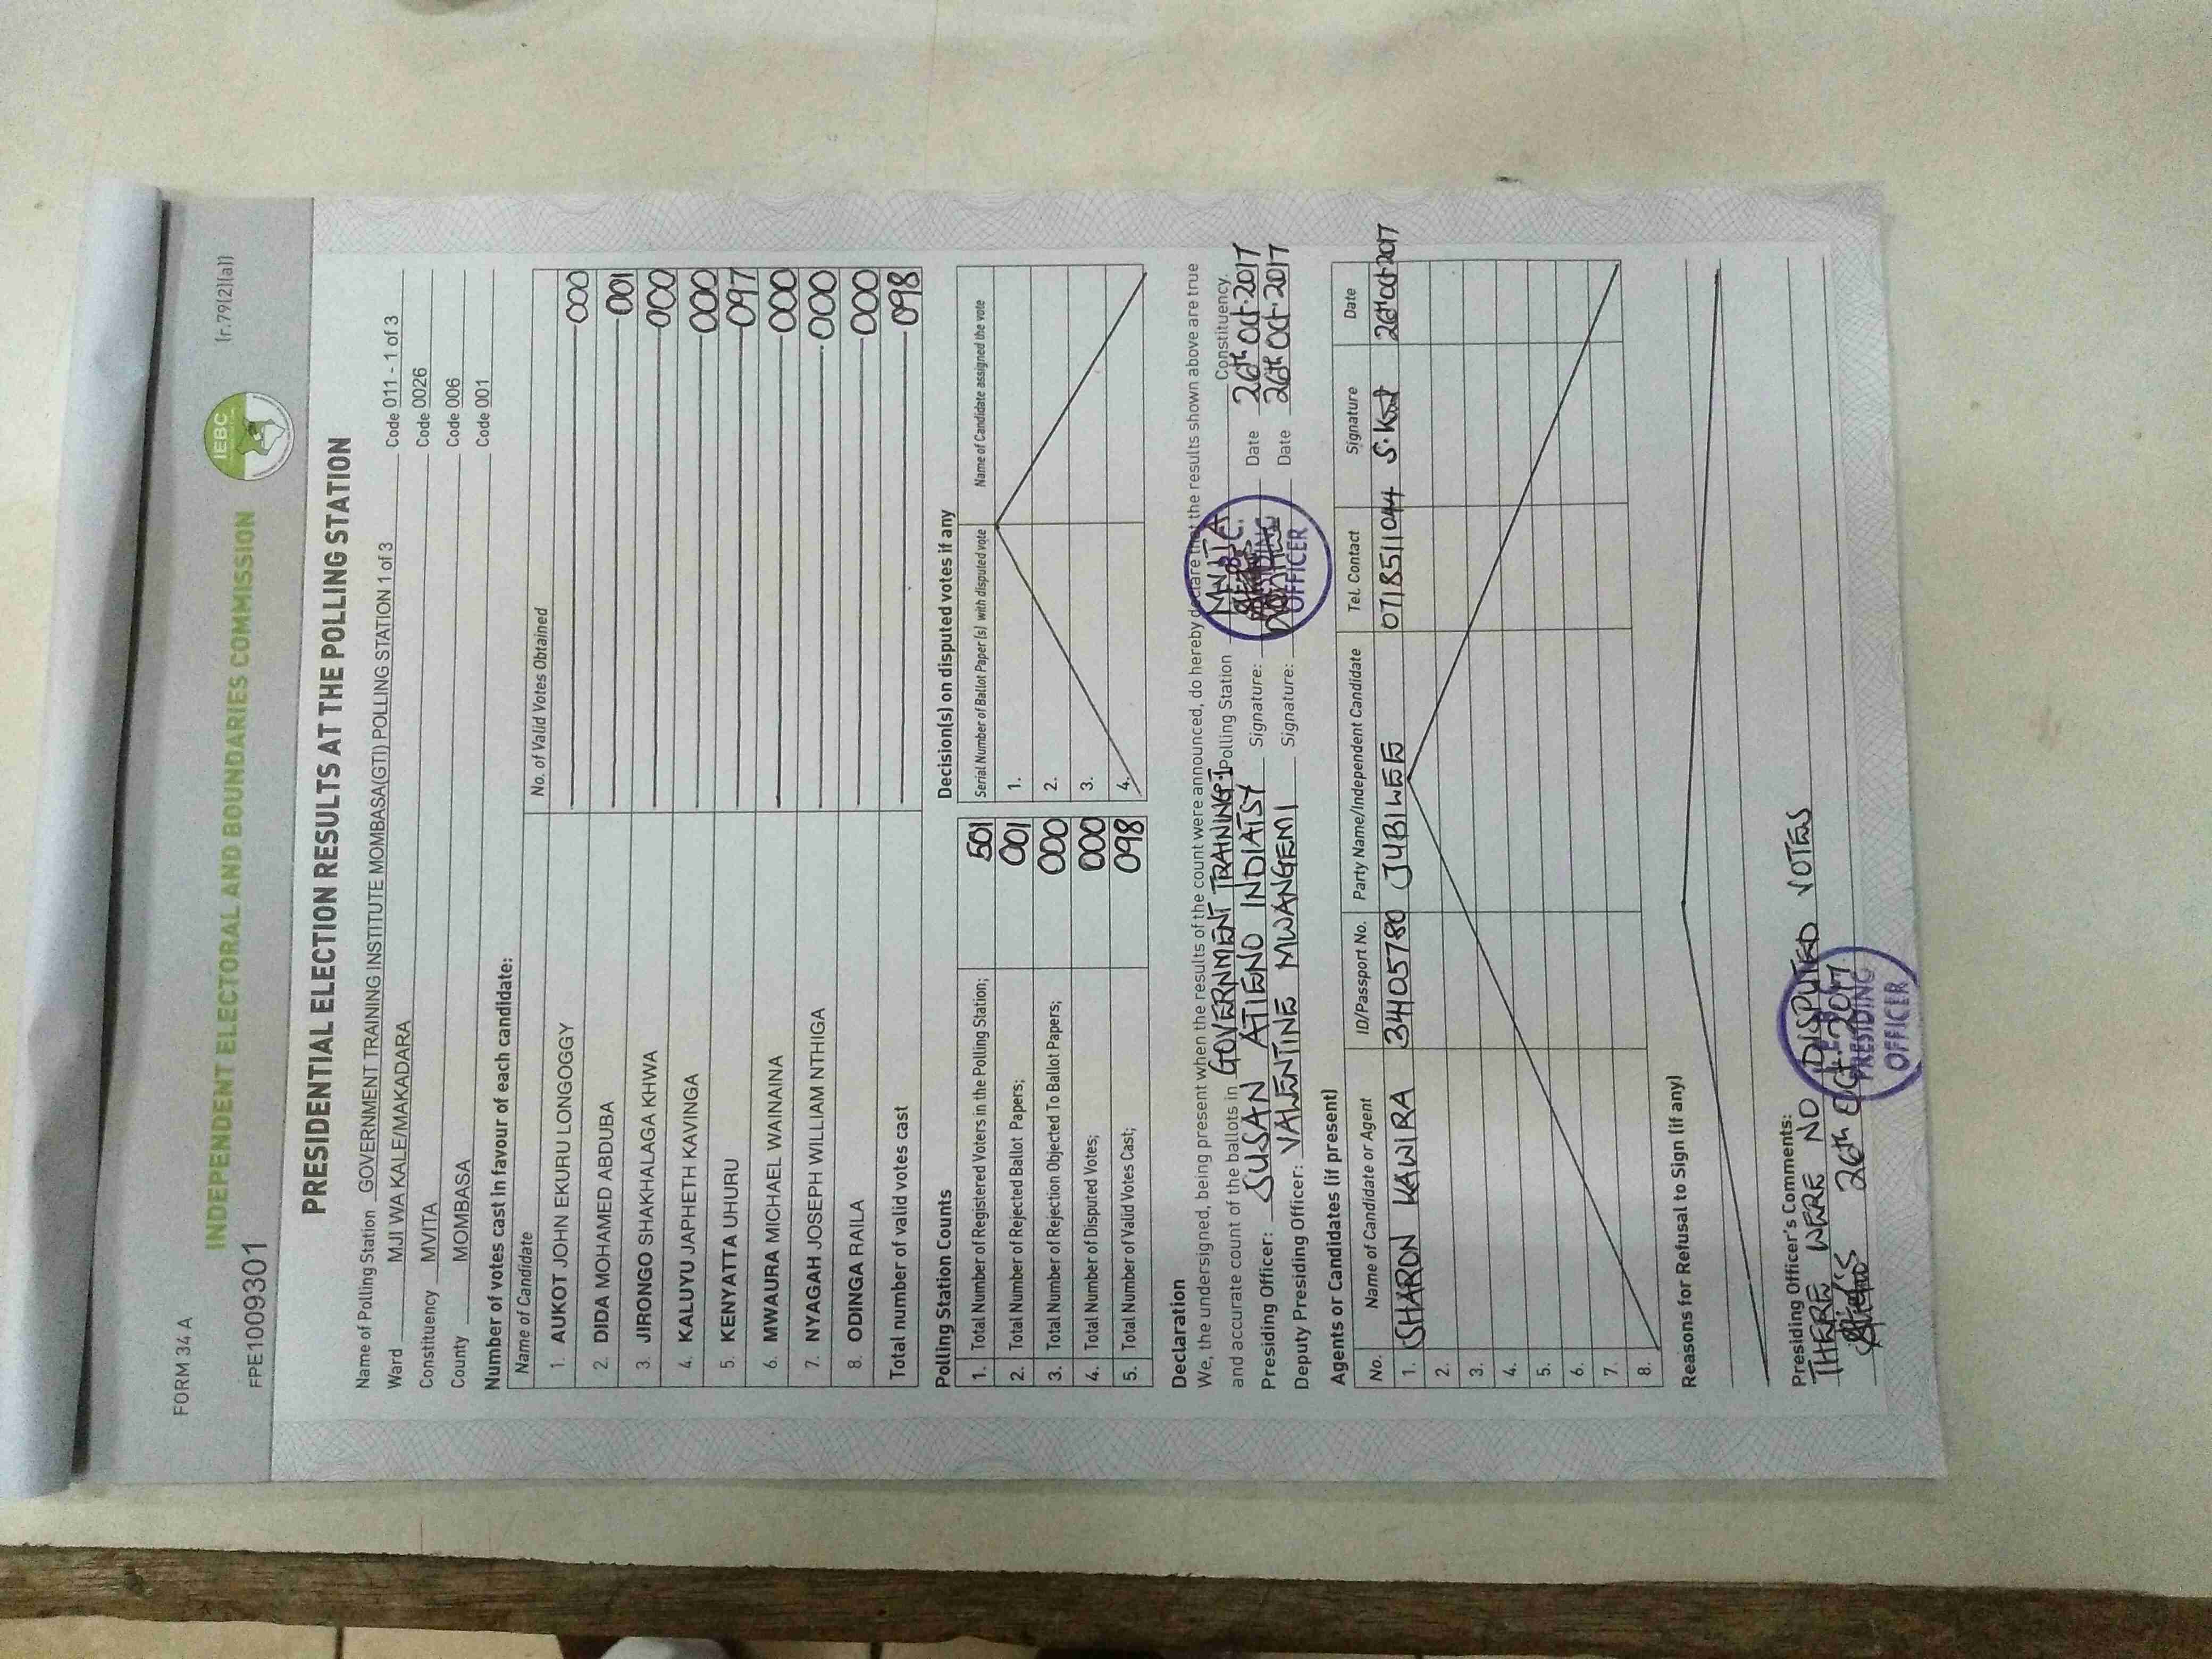 FORM 34 A
INDEPENDENT ELECTORAL AND BOUNDARIES COMMISSION
IEBC
(r.79(2)(a))
FPE1009301
PRESIDENTIAL ELECTION RESULTS AT THE POLLING STATION
Name of Polling Station GOVERNMENT TRAINING INSTITUTE MOMBASA(GTI) POLLING STATION 1 of 3 Code 011 - 1 of 3
Ward MJI WA KALE/MAKADARA Code 0026
Constituency MVITA Code 006
County MOMBASA Code 001
Number of votes cast in favour of each candidate:
Name of Candidate No. of Valid Votes Obtained
1. AUKOT JOHN EKURU LONGOGGY 000
2. DIDA MOHAMED ABDUBA 001
3. JIRONGO SHAKHALAGA KHWA 000
4. KALUYU JAPHETH KAVINGA 000
5. KENYATTA UHURU 097
6. MWAURA MICHAEL WAINAINA 000
7. NYAGAH JOSEPH WILLIAM NTHIGA 000
8. ODINGA RAILA 000
Total number of valid votes cast 098
Polling Station Counts
1. Total Number of Registered Voters in the Polling Station; 501
2. Total Number of Rejected Ballot Papers; 001
3. Total Number of Rejection Objected To Ballot Papers; 000
4. Total Number of Disputed Votes; 000
5. Total Number of Valid Votes Cast; 098
Decision(s) on disputed votes if any
Serial Number of Ballot Paper (s) with disputed vote Name of Candidate assigned the vote
1.
2.
3.
4.
Declaration
We, the undersigned, being present when the results of the count were announced, do hereby declare that the results shown above are true
and accurate count of the ballots in GOVERNMENT TRAINING-1 Polling Station MVITA Constituency.
Presiding Officer: SUSAN ATIENO INDIATSY Signature: Date 26th Oct. 2017
Deputy Presiding Officer: VALENTINE MWANGEMI Signature: Date 26th Oct. 2017
OFFICER
Agents or Candidates (if present)
No. Name of Candidate or Agent ID/Passport No. Party Name/Independent Candidate Tel. Contact Signature Date
1. SHARON KAWIRA 34405780 JUBILEE 0718511044 26th Oct 2017
2.
3.
4.
5.
6.
7.
8.
Reasons for Refusal to Sign (if any)
Presiding Officer's Comments:
THERE WERE NO DISPUTED VOTES
26th Oct. 2017
PRESIDING
OFFICER